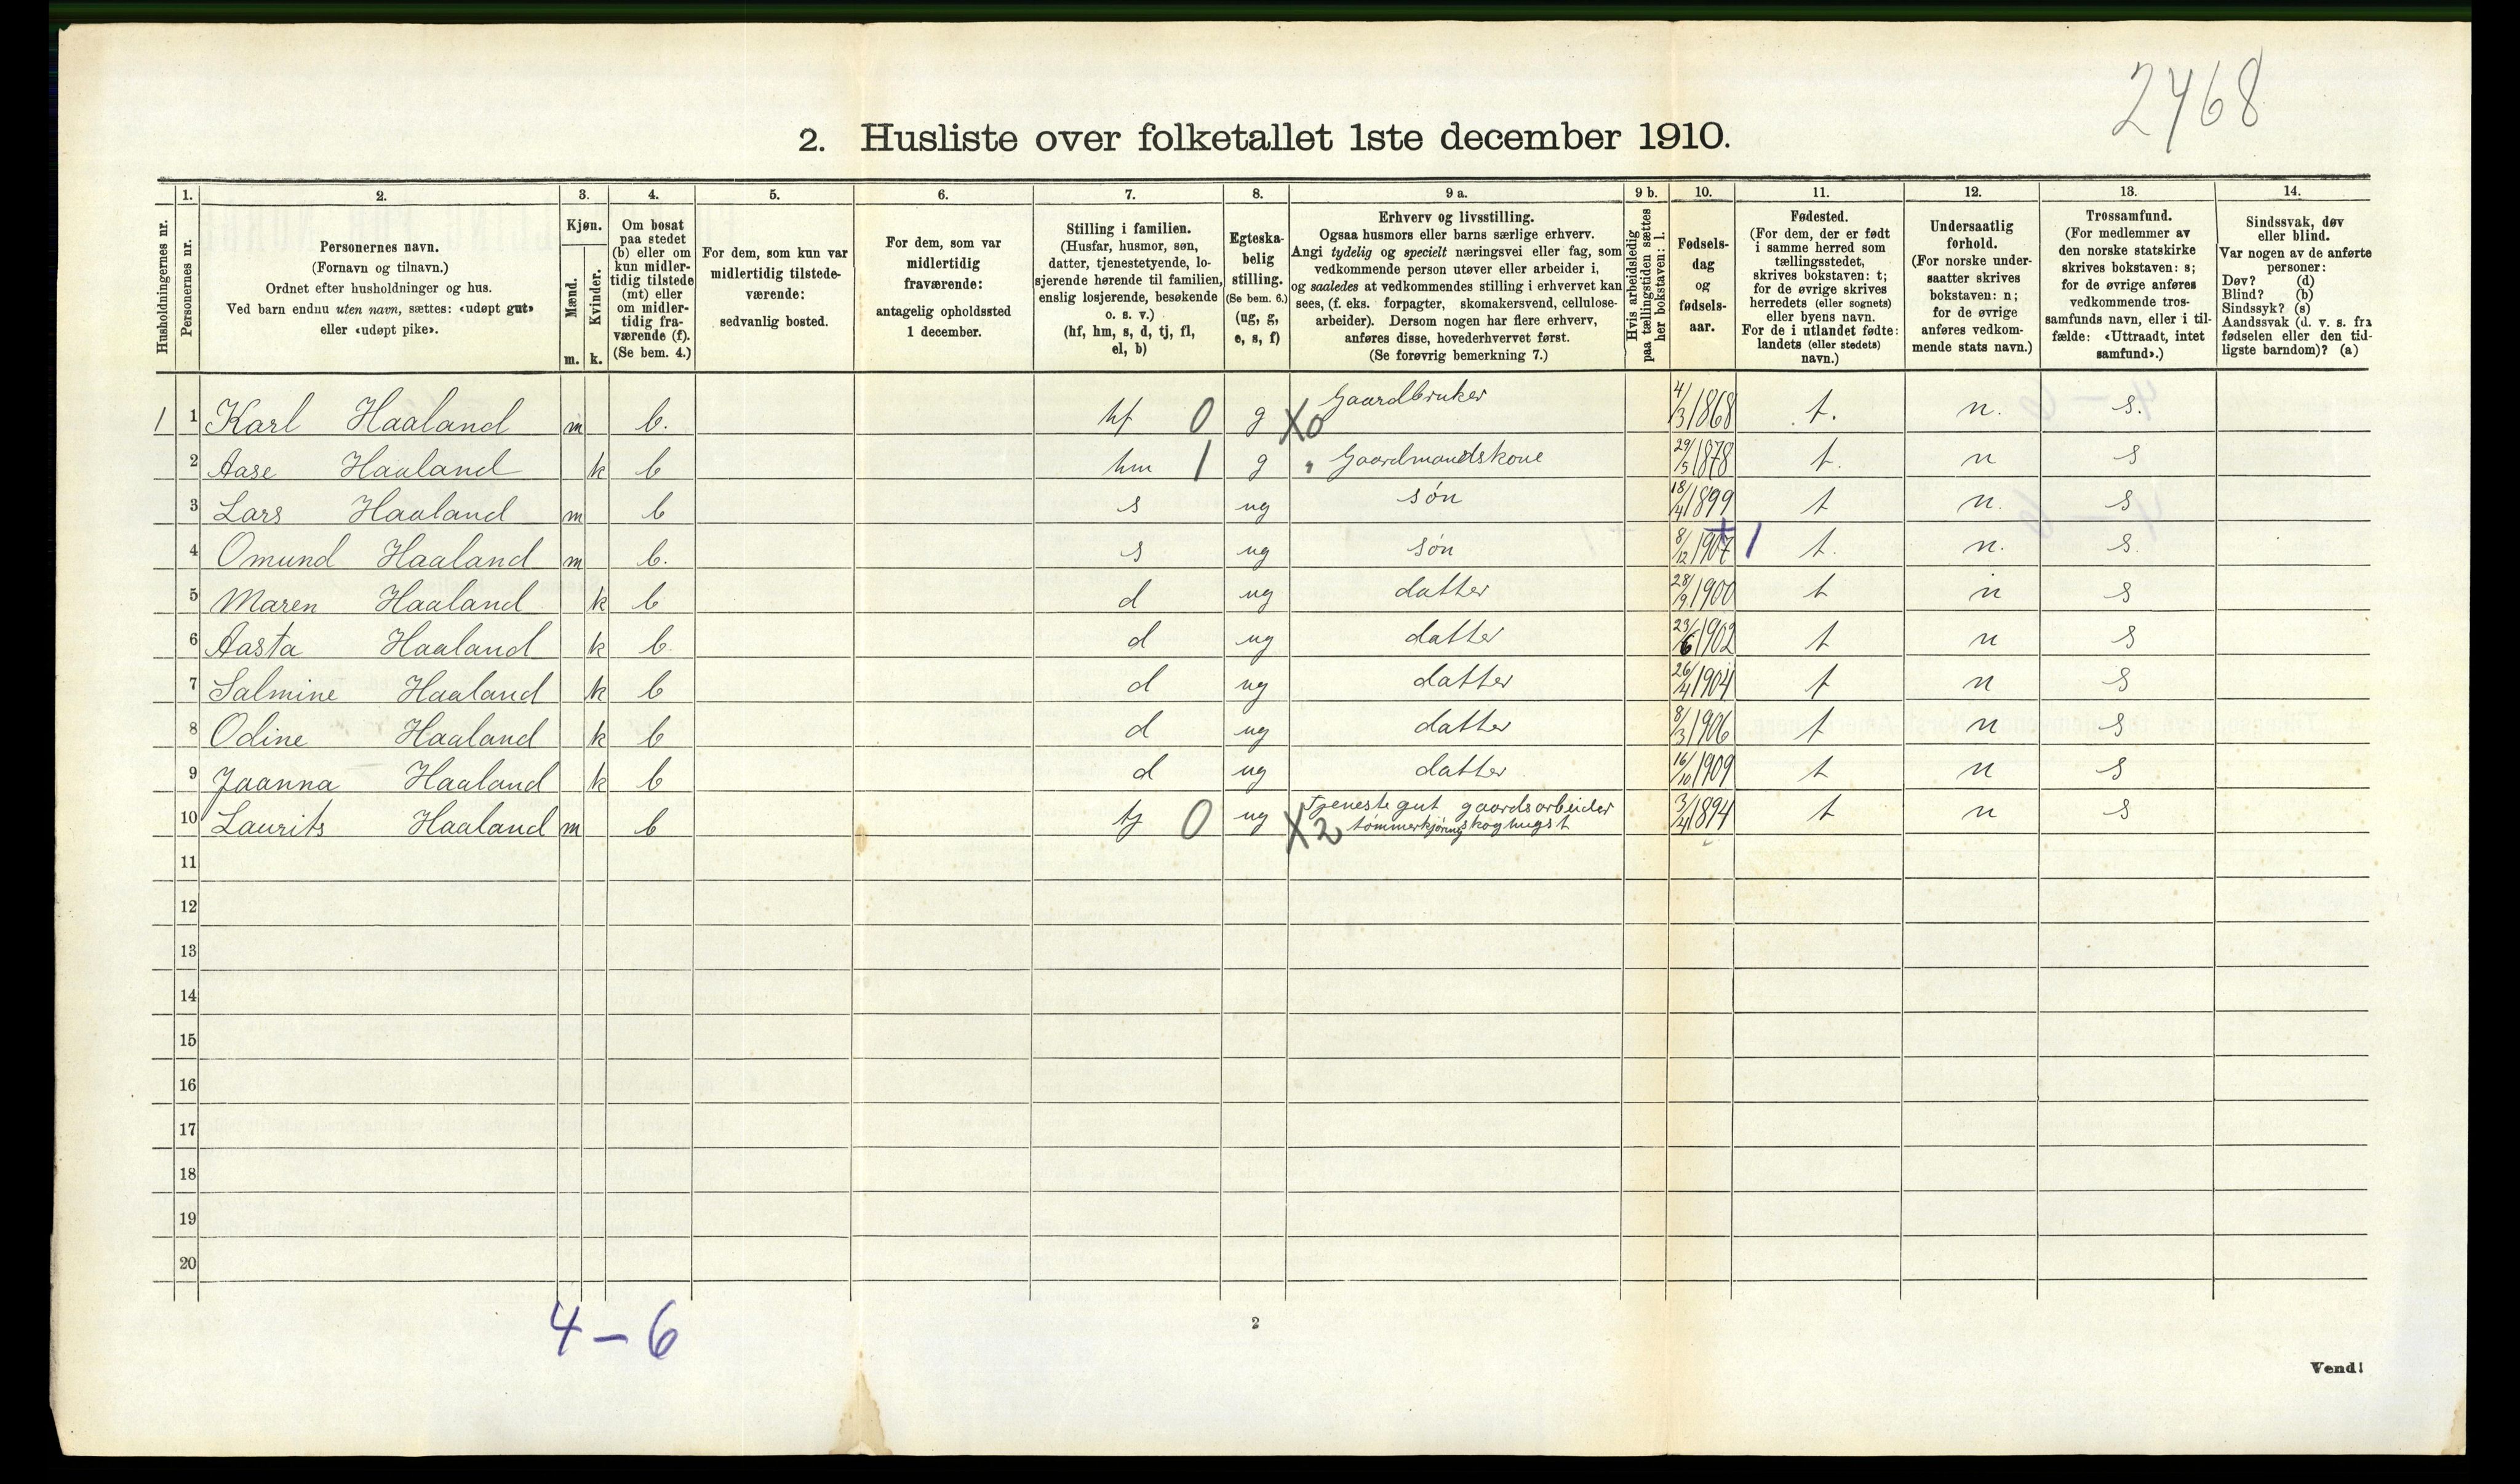 2468
2. Husliste over folketallet 1ste december 1910.
Husholdningernes nr.
1.
Personernes nr.
2.
Personernes navn.
(Fornavn og tilnavn.)
Ordnet efter husholdninger og hus.
Ved barn endnu uten navn, sættes: «udøpt gut»
eller «udøpt pike».
3.
Kjøn.
Mænd.
m.
Kvinder.
k.
4.
Om bosat
paa stedet
(b) eller om
kun midler-
tidig tilstede
(mt) eller
om midler-
tidig fra-
værende (f).
(Se bem. 4.)
5.
For dem, som kun var
midlertidig tilstede-
værende:
sedvanlig bosted.
6.
For dem, som var
midlertidig
fraværende:
antagelig opholdssted
1 december.
7.
Stilling i familien.
(Husfar, husmor, søn,
datter, tjenestetyende, lo-
sjerende hørende til familien,
enslig losjerende, besøkende
o. s. v.)
(hf, hm, s, d, tj, fl,
el, b)
8.
Egteska-
belig
stilling.
(Se bem. 6.)
(ug, g,
e, s, f)
9 a.
Erhverv og livsstilling.
Ogsaa husmors eller barns særlige erhverv.
Angi tydelig og specielt næringsvei eller fag, som
vedkommende person utøver eller arbeider i,
og saaledes at vedkommendes stilling i erhvervet kan
sees, (f. eks. forpagter, skomakersvend, cellulose-
arbeider). Dersom nogen har flere erhverv,
anføres disse, hovederhvervet først.
(Se forøvrig bemerkning 7.)
9 b.
Hvis arbeidsledig
paa tællingstiden sættes
her bokstaven: l.
10.
Fødsels-
dag
og
fødsels-
aar.
11.
Fødested.
(For dem, der er født
i samme herred som
tællingsstedet,
skrives bokstaven: t;
for de øvrige skrives
herredets (eller sognets)
eller byens navn.
For de i utlandet fødte:
landets (eller stedets)
navn.)
12.
Undersaatlig
forhold.
(For norske under-
saatter skrives
bokstaven: n;
for de øvrige
anføres vedkom-
mende stats navn.)
13.
Trossamfund.
(For medlemmer av
den norske statskirke
skrives bokstaven: s;
for de øvrige anføres
vedkommende tros-
samfunds navn, eller i til-
fælde: «Uttraadt, intet
samfund».)
14.
Sindssvak, døv
eller blind.
Var nogen av de anførte
personer:
Døv? (d)
Blind? (b)
Sindssyk? (s)
Aandssvak (d. v. s. fra
fødselen eller den tid-
ligste barndom)? (a)
1 1 Karl Haaland m b. hf 0 g X0 Gaardbruker 4/3 1868 t. n. s.
2 Aase Haaland k b hm 1 g " Gaardmandskone 29/5 1878 t. n s
3 Lars Haaland m b s ug søn 18/4 1899 t n. s
4 Omund Haaland m b. s ug søn 8/12 1907 1 t. n. s.
5 Maren Haaland k b d ug datter 28/9 1900 t n s
6 Aasta Haaland k b. d ug datter 23/6 1902 t n s
7 Salmine Haaland k b d ug datter 26/4 1904 t n s
8 Odine Haaland k b d ug datter 8/3 1906 t n s
9 Jaanna Haaland k b d ug datter 16/10 1909 t n s
10 Laurits Haaland m b tj 0 ug X2 Tjenestegut gaardsarbeider 3/4 1894 t n s
tømmerkjøring skoghugst
11
12
13
14
15
16
17
18
19
20
4 – 6
2
Vend!